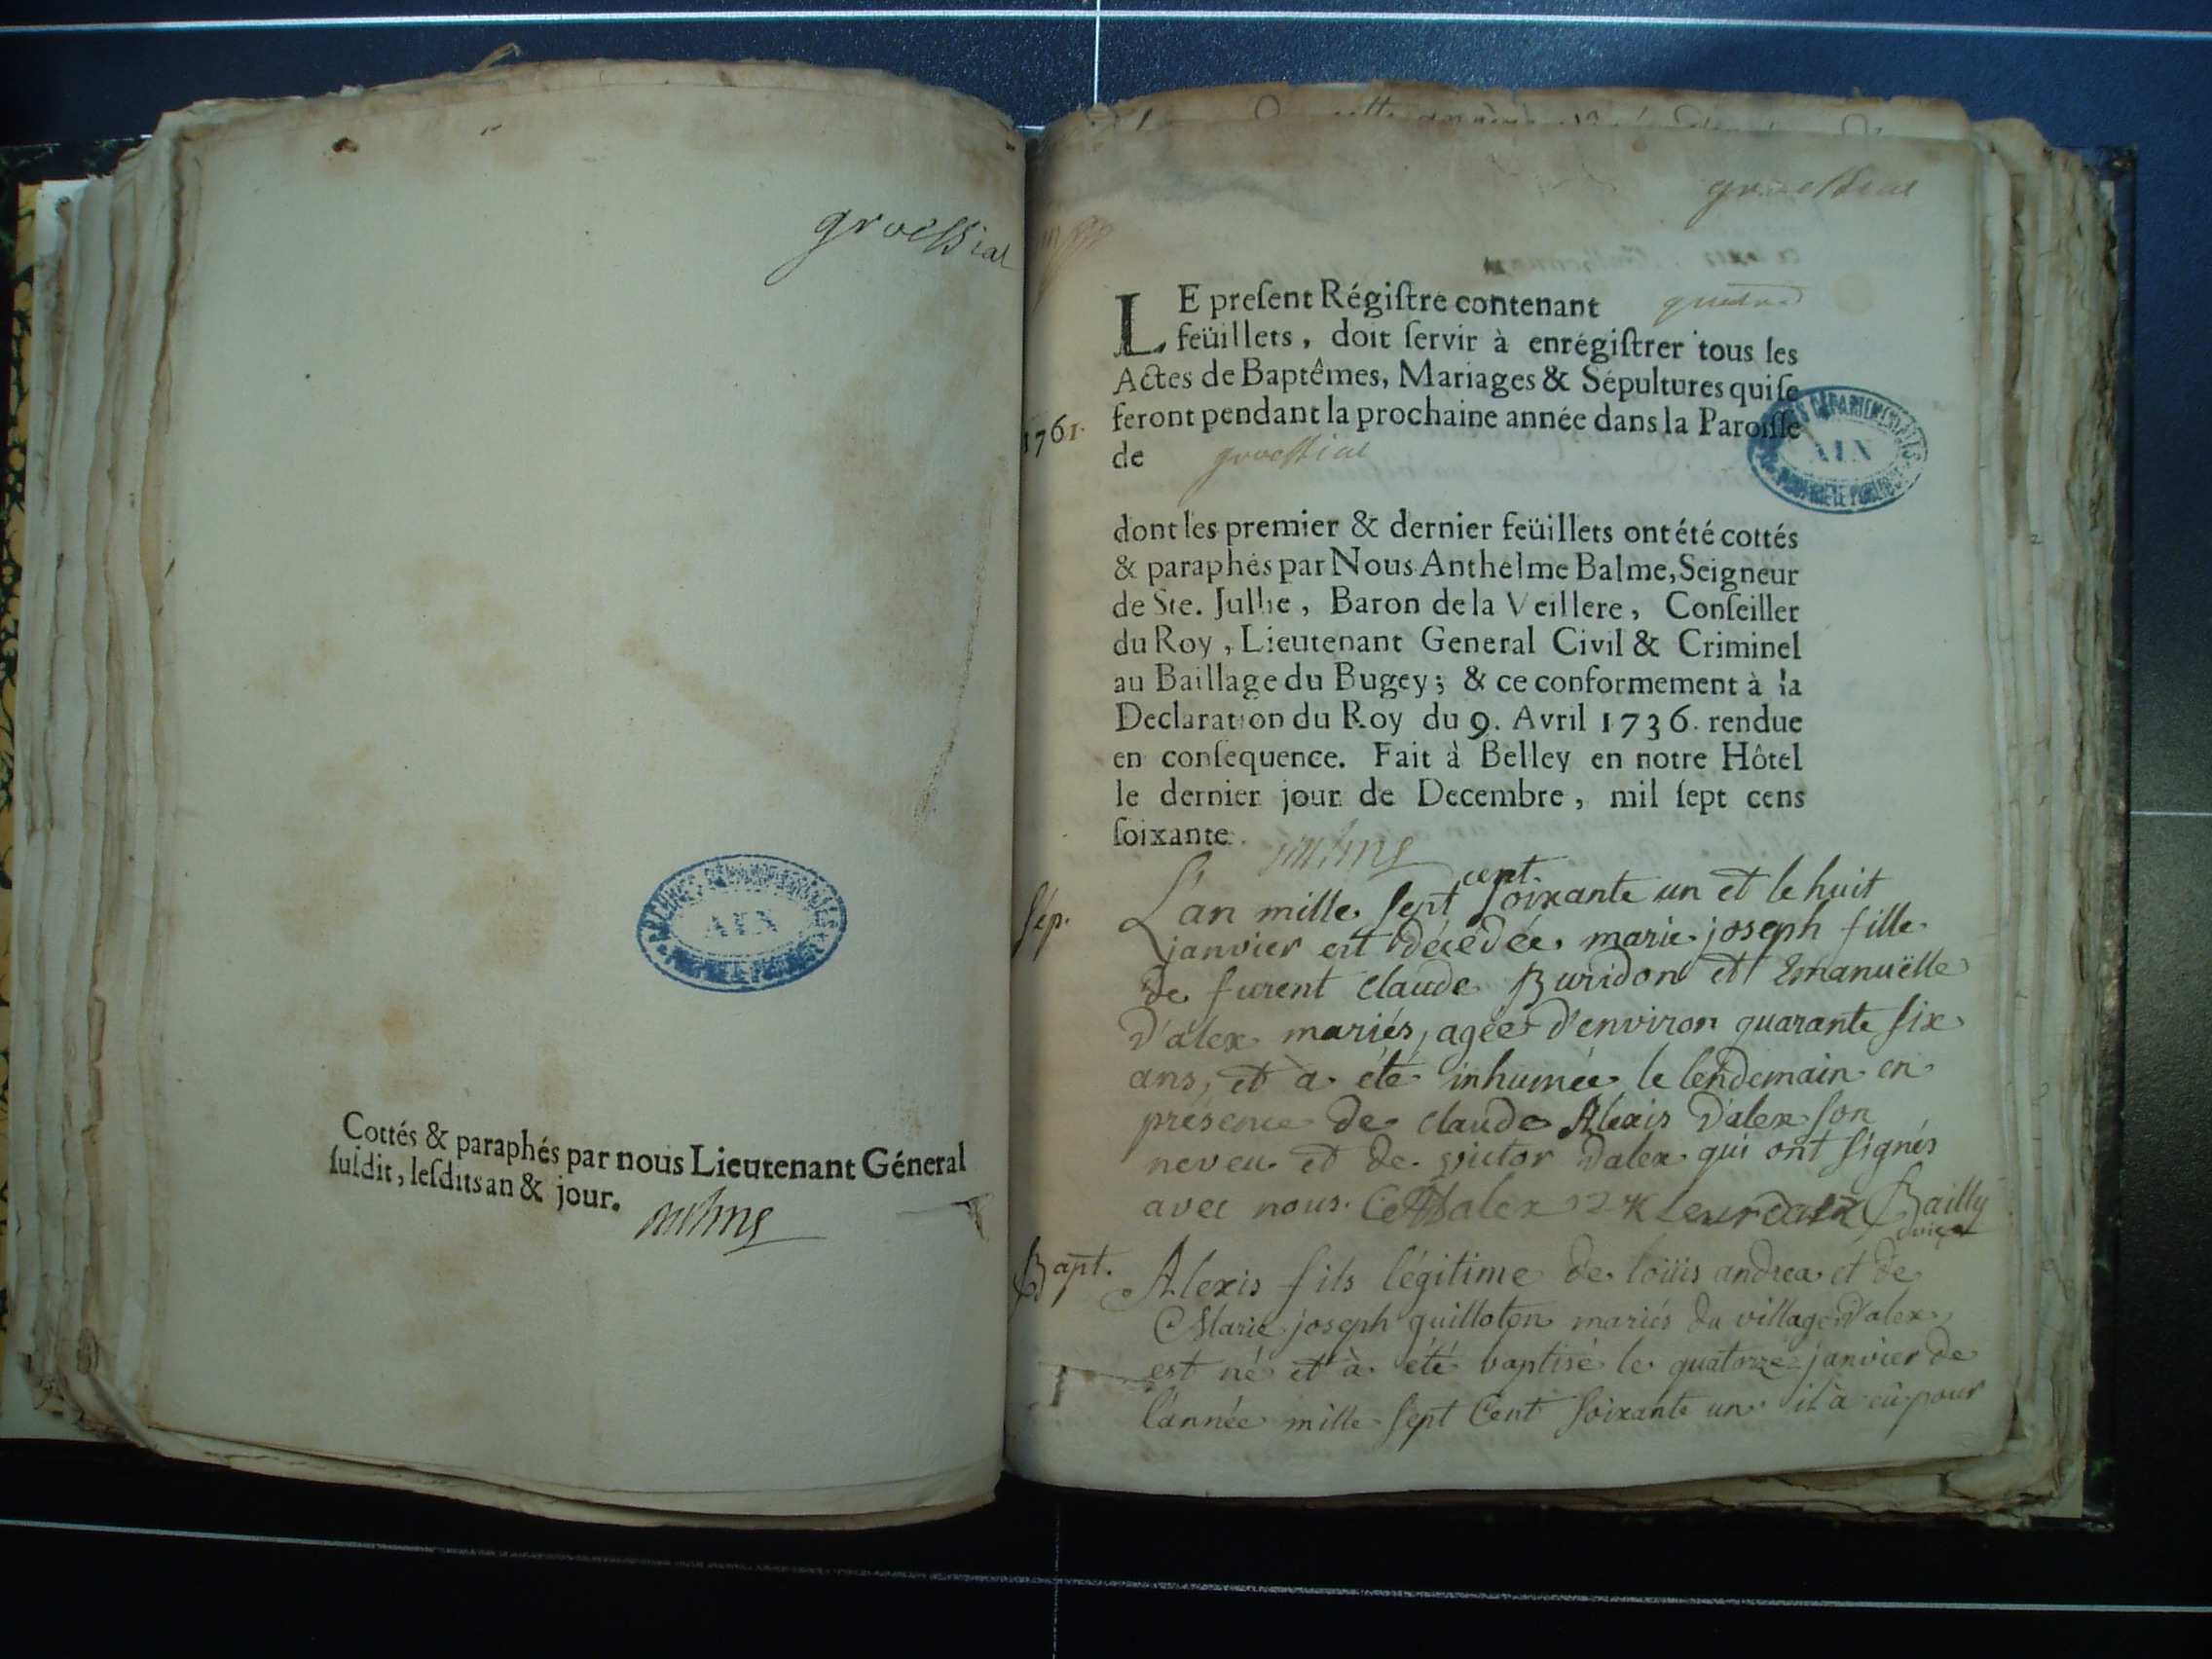 groissiat
Cottés & paraphés par nous Lieutenant Géneral
ſuſdit, leſdits an & jour.
ARCHIVES DÉPARTEMENTALES
AIN
groissiat
LE preſent Régiſtre contenant
feüillets, doit ſervir à enrégiſtrer tous les
Actes de Baptêmes, Mariages & Sépultures qui ſe
feront pendant la prochaine année dans la Paroiſſe
1761.
de groissiat
DÉPARTEMENTALES
AIN
PROPRIÉTÉ PUBLIQUE
dont les premier & dernier feüillets ont été cottés
& paraphés par Nous Anthelme Balme, Seigneur
de Ste. Jullie, Baron de la Veillere, Conſeiller
du Roy, Lieutenant General Civil & Criminel
au Baillage du Bugey; & ce conformement à la
Declaration du Roy du 9. Avril 1736. rendue
en conſequence. Fait à Belley en notre Hôtel
le dernier jour de Decembre, mil ſept cens
ſoixante.
Sép.
L'an mille sept cent soixante un et le huit
janvier est décédée marie joseph fille
de furent claude Buridon et Emanuëlle
D'alex mariés, agée d'environ quarante six
ans, et à été inhumée le lendemain en
présence de claude Alexis Dalex son
neveu et de victor Dalex qui ont signés
avec nous. CADalex Bailly
Bapt.
Alexis fils légitime de loüis andrea et de
Marie joseph guilloton mariés du village d'alex
est né et à été baptisé le quatorze janvier de
l'année mille sept Cent soixante un il à eû pour